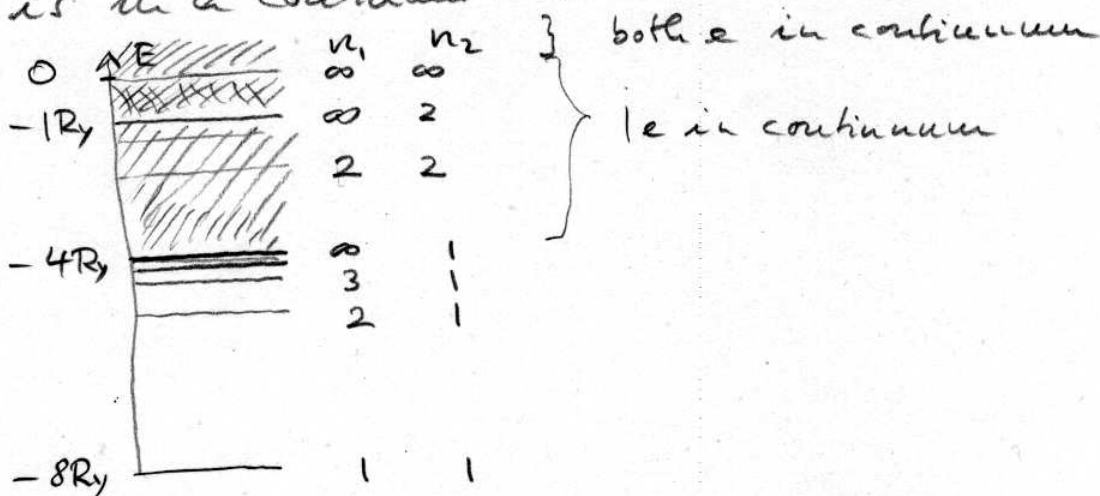 is in a continuum
E n₁ n₂ } both e in continuum
0 ∞ ∞
-1Ry ∞ 2 1e in continuum
2 2
-4Ry ∞ 1
3 1
2 1
-8Ry 1 1